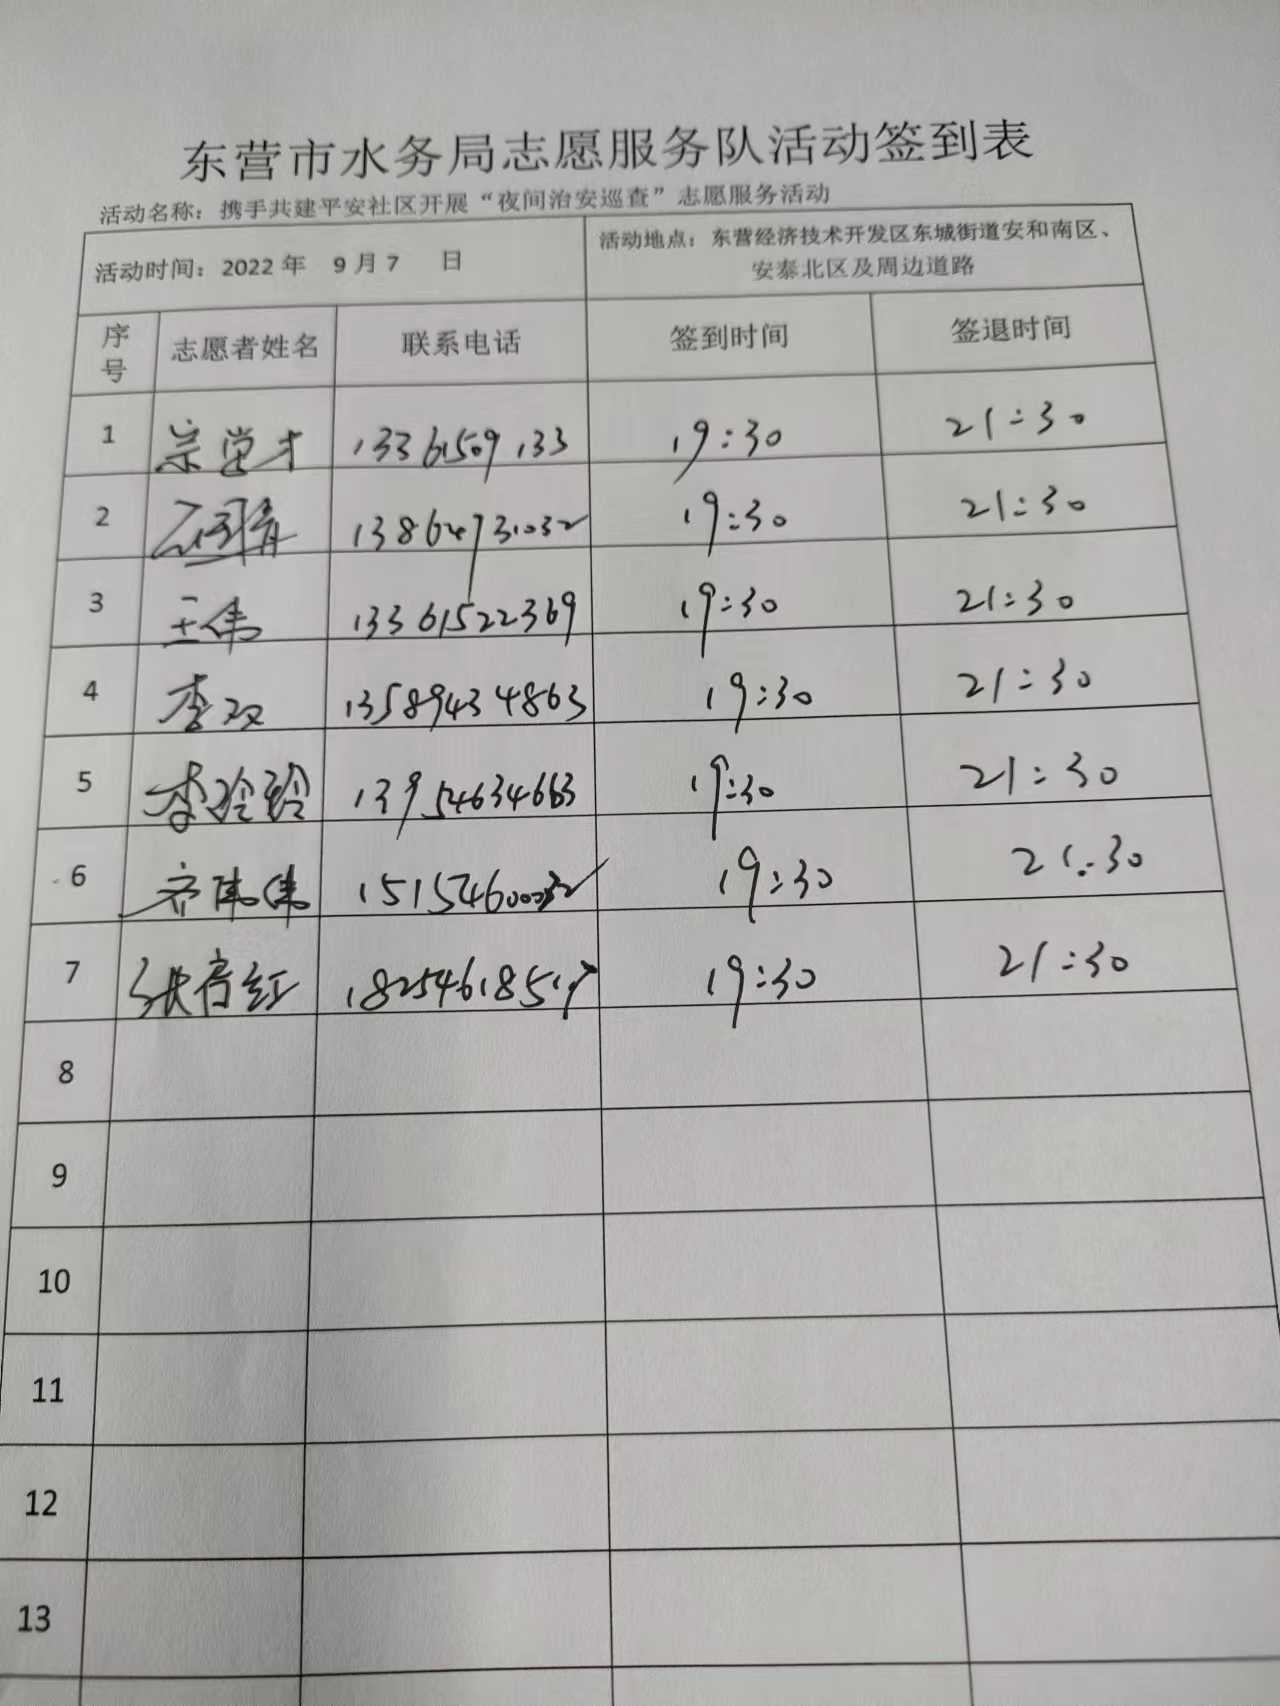 东营市水务局志愿服务队活动签到表
活动名称：携手共建平安社区开展“夜间治安巡查”志愿服务活动
活动时间：2022年 9月7 日
活动地点：东营经济技术开发区东城街道安和南区、
安泰北区及周边道路
序号 志愿者姓名 联系电话 签到时间 签退时间
1 19:30 21:30
2 13864731032 19:30 21:30
3 王伟 13361522369 19:30 21:30
4 李双 13589434863 19:30 21:30
5 李玲玲 13954634663 19:30 21:30
6 19:30 21:30
7 19:30 21:30
8
9
10
11
12
13